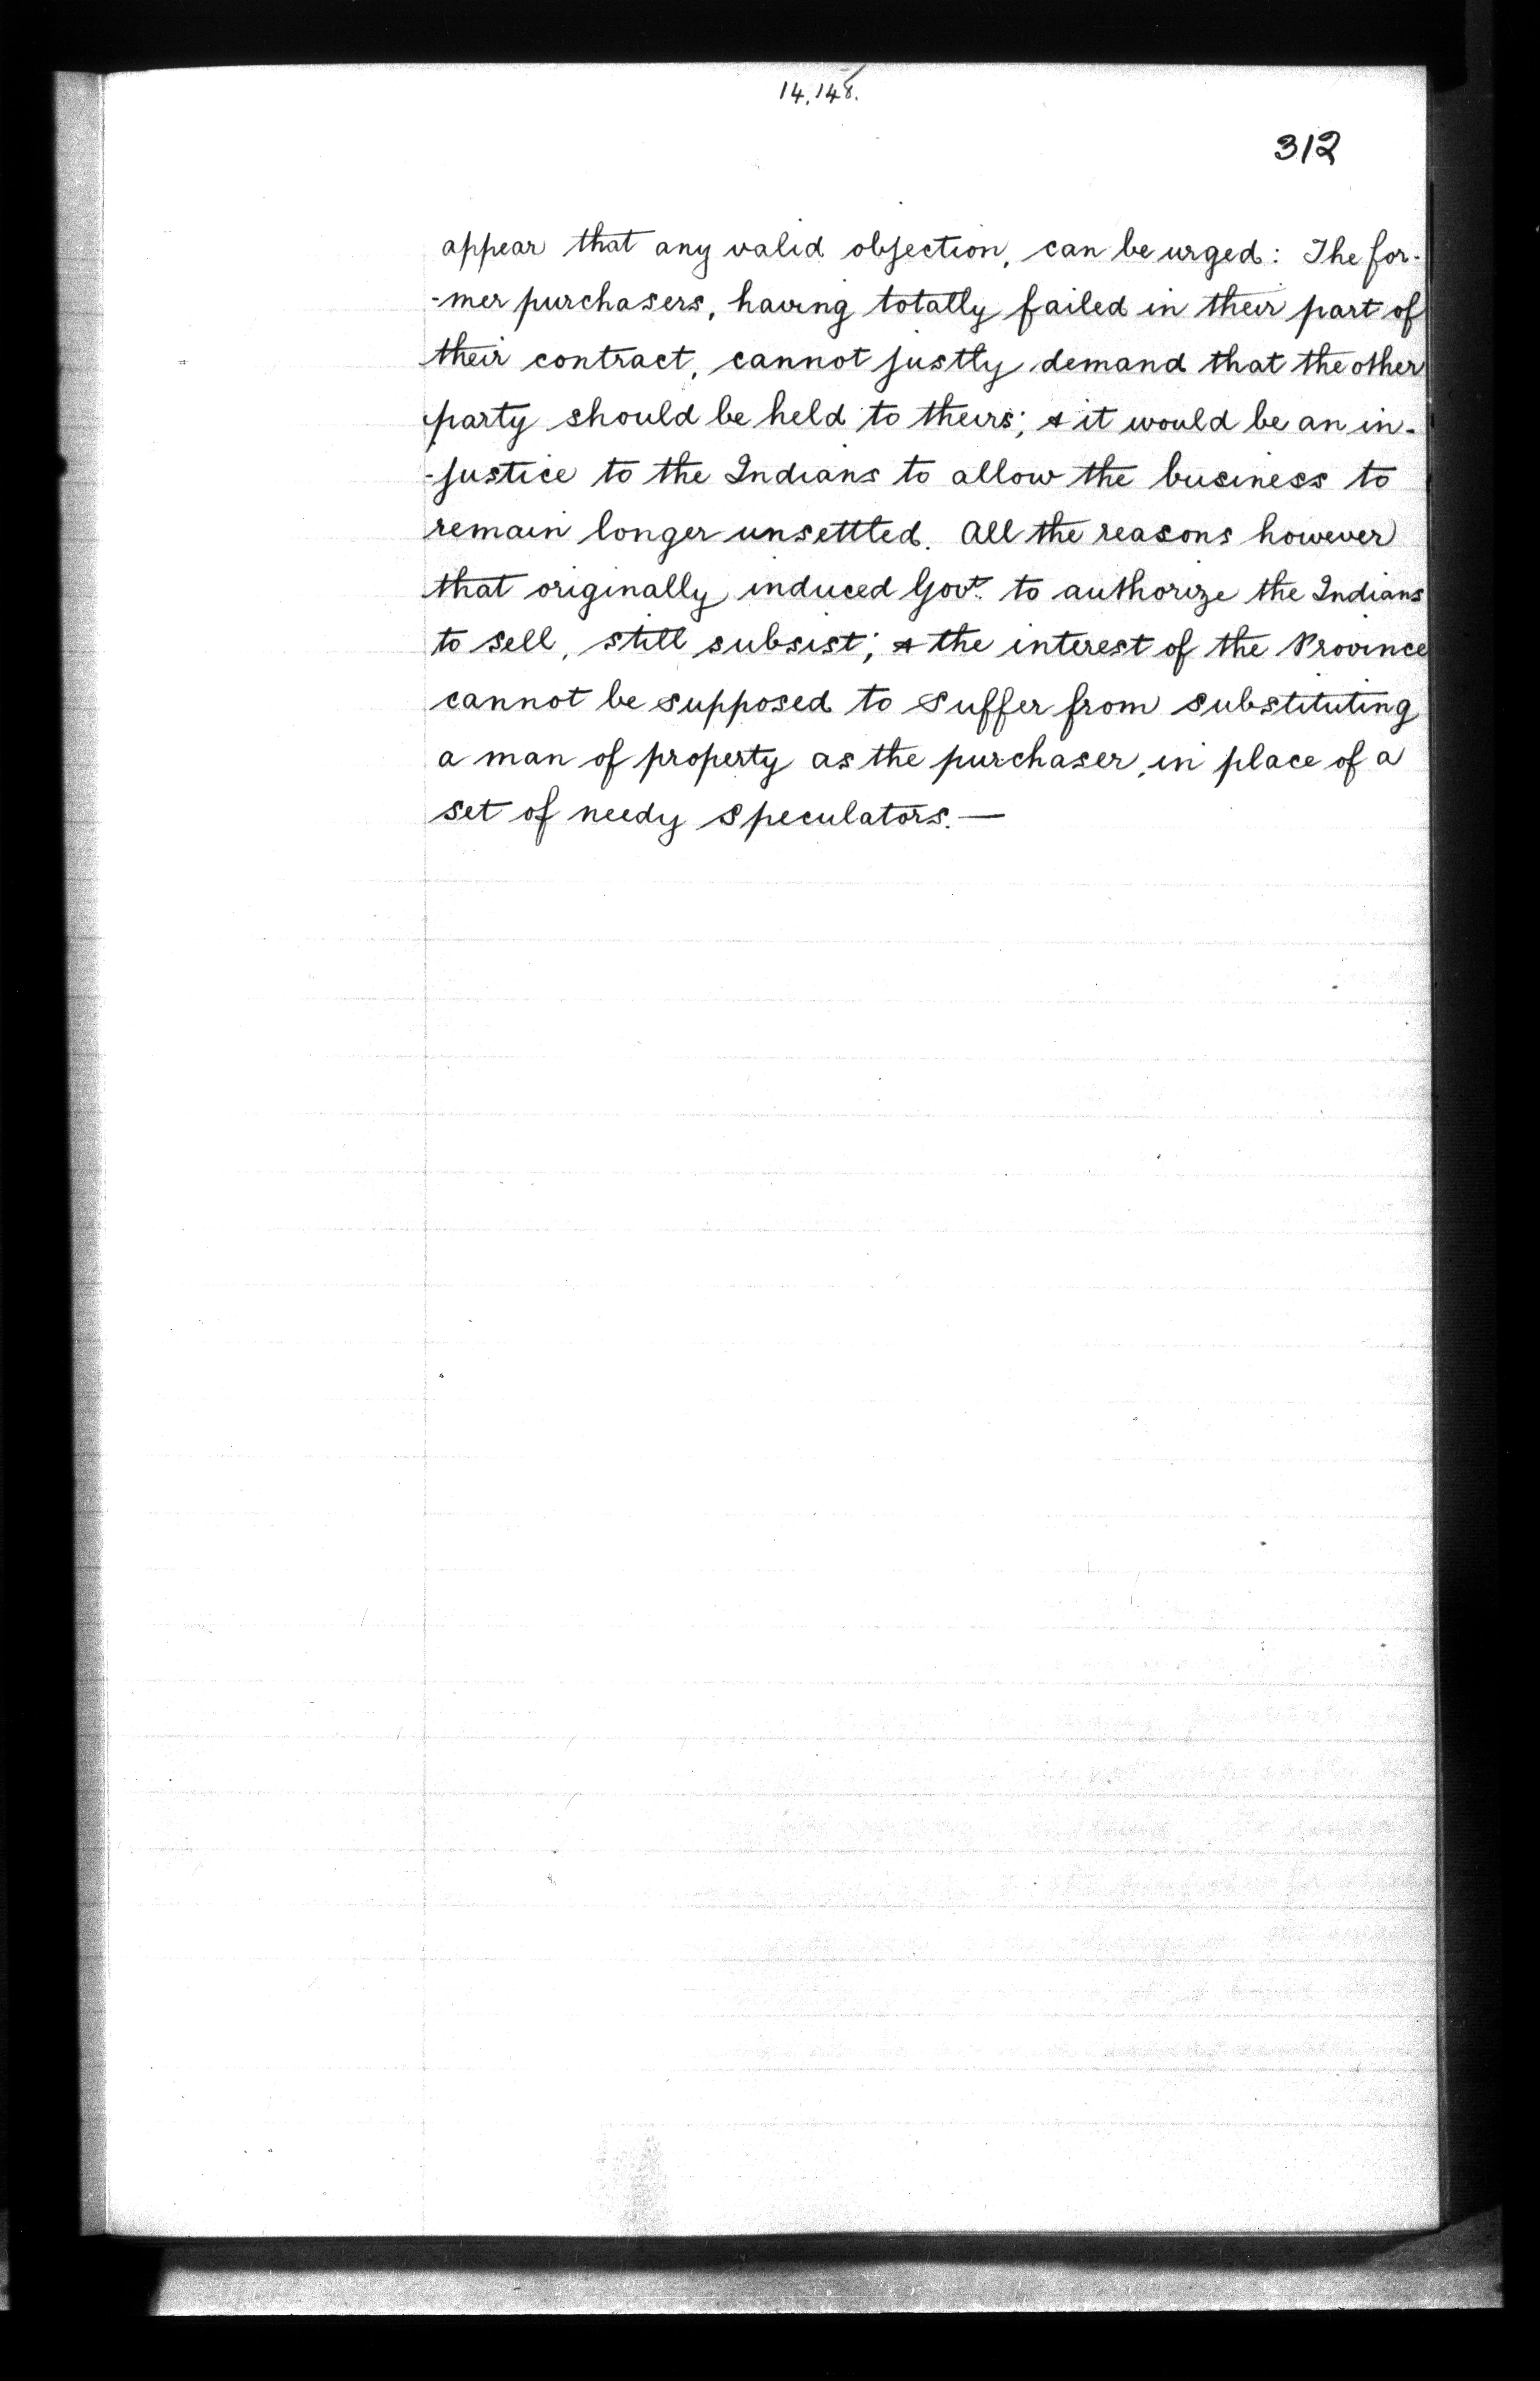 14.148.
312
appear that any valid objection, can be urged: The for-
-mer purchasers, having totally failed in their part of
their contract, cannot justly demand that the other
party should be held to theirs; & it would be an in-
-justice to the Indians to allow the business to
remain longer unsettled. All the reasons however
that originally induced Govt. to authorize the Indians
to sell, still subsist; & the interest of the Province
cannot be supposed to suffer from substituting
a man of property as the purchaser, in place of a
set of needy speculators. —